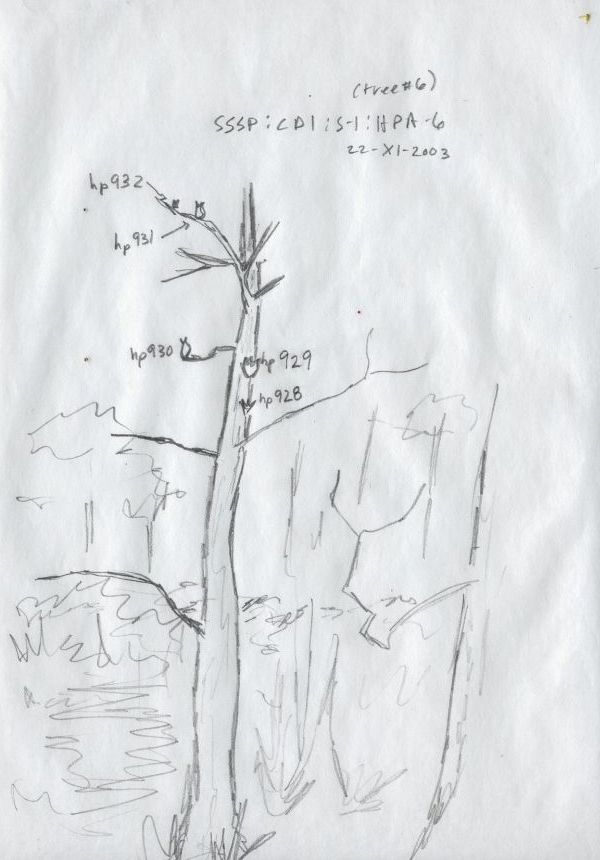 (tree#6)
SSSP:CD1:S-1:HPA-6
22-XI-2003
hp932
hp931
hp930
hp929
hp928